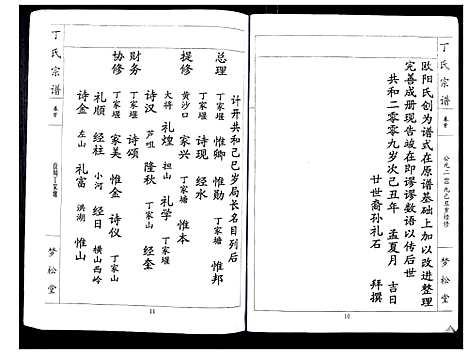 丁氏宗谱
卷首
公元二零零九己丑岁经修
梦松堂
欧阳氏创为谱式在原谱基础上加以改进整理
完善成册现告竣在即谬谬数语以传后世
共和二零零九岁次己丑年 孟夏月 吉日
廿世裔孙礼石 拜撰
10
计开共和己巳岁局长名目列后
总理 丁家堰 惟卿 惟勋 丁家堰 惟邦
丁家堰 诗现 经水
提修 黄沙口 家兴 丁家塘 惟本
大将 礼煌 担山 礼学 丁家堰
诗汉 芦咀 隆秋 丁家山 经奎
财务 丁家堰 经堂 诗
协修 丁家塘 家美 惟金 诗仪 丁家山
礼顺 经柱 小河 经日 横山西岭
诗金 左山 礼富 洪湖 惟山
丁氏宗谱
卷首
梦松堂
11